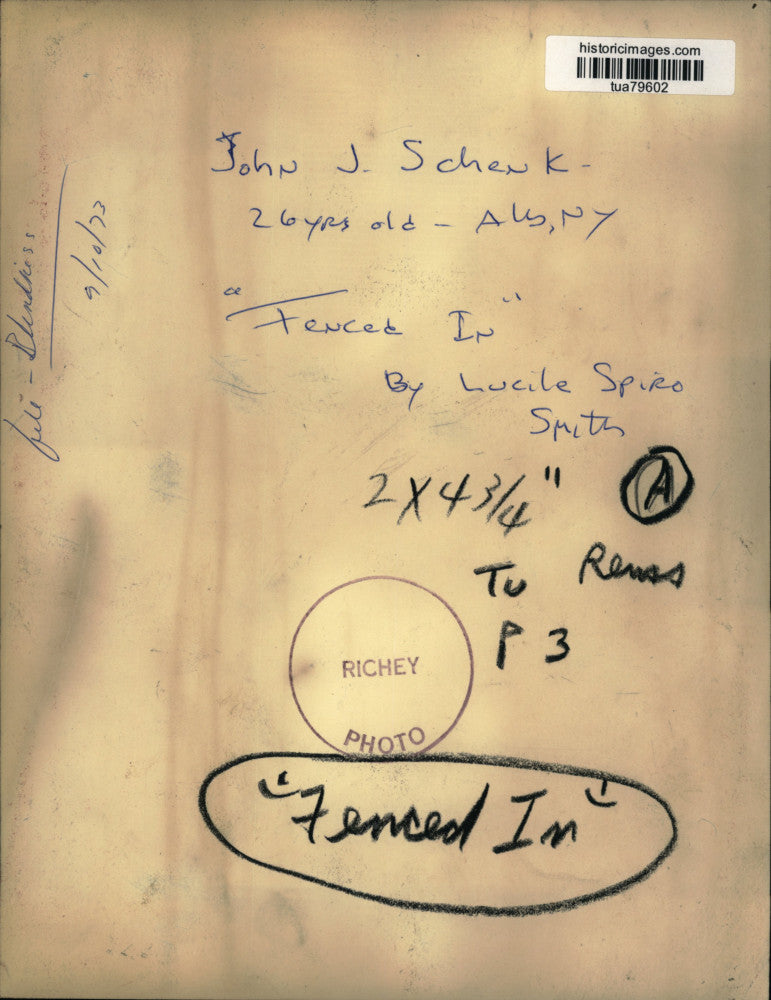 historicimages.com
tua79602
John J. Schenk -
26 yrs old - Alb, NY
"Fenced In"
By Lucile Spiro
Smith
file - Blindness
9/10/73
2 X 4 3/4"
A
Tu
P 3
RICHEY
PHOTO
"Fenced In"